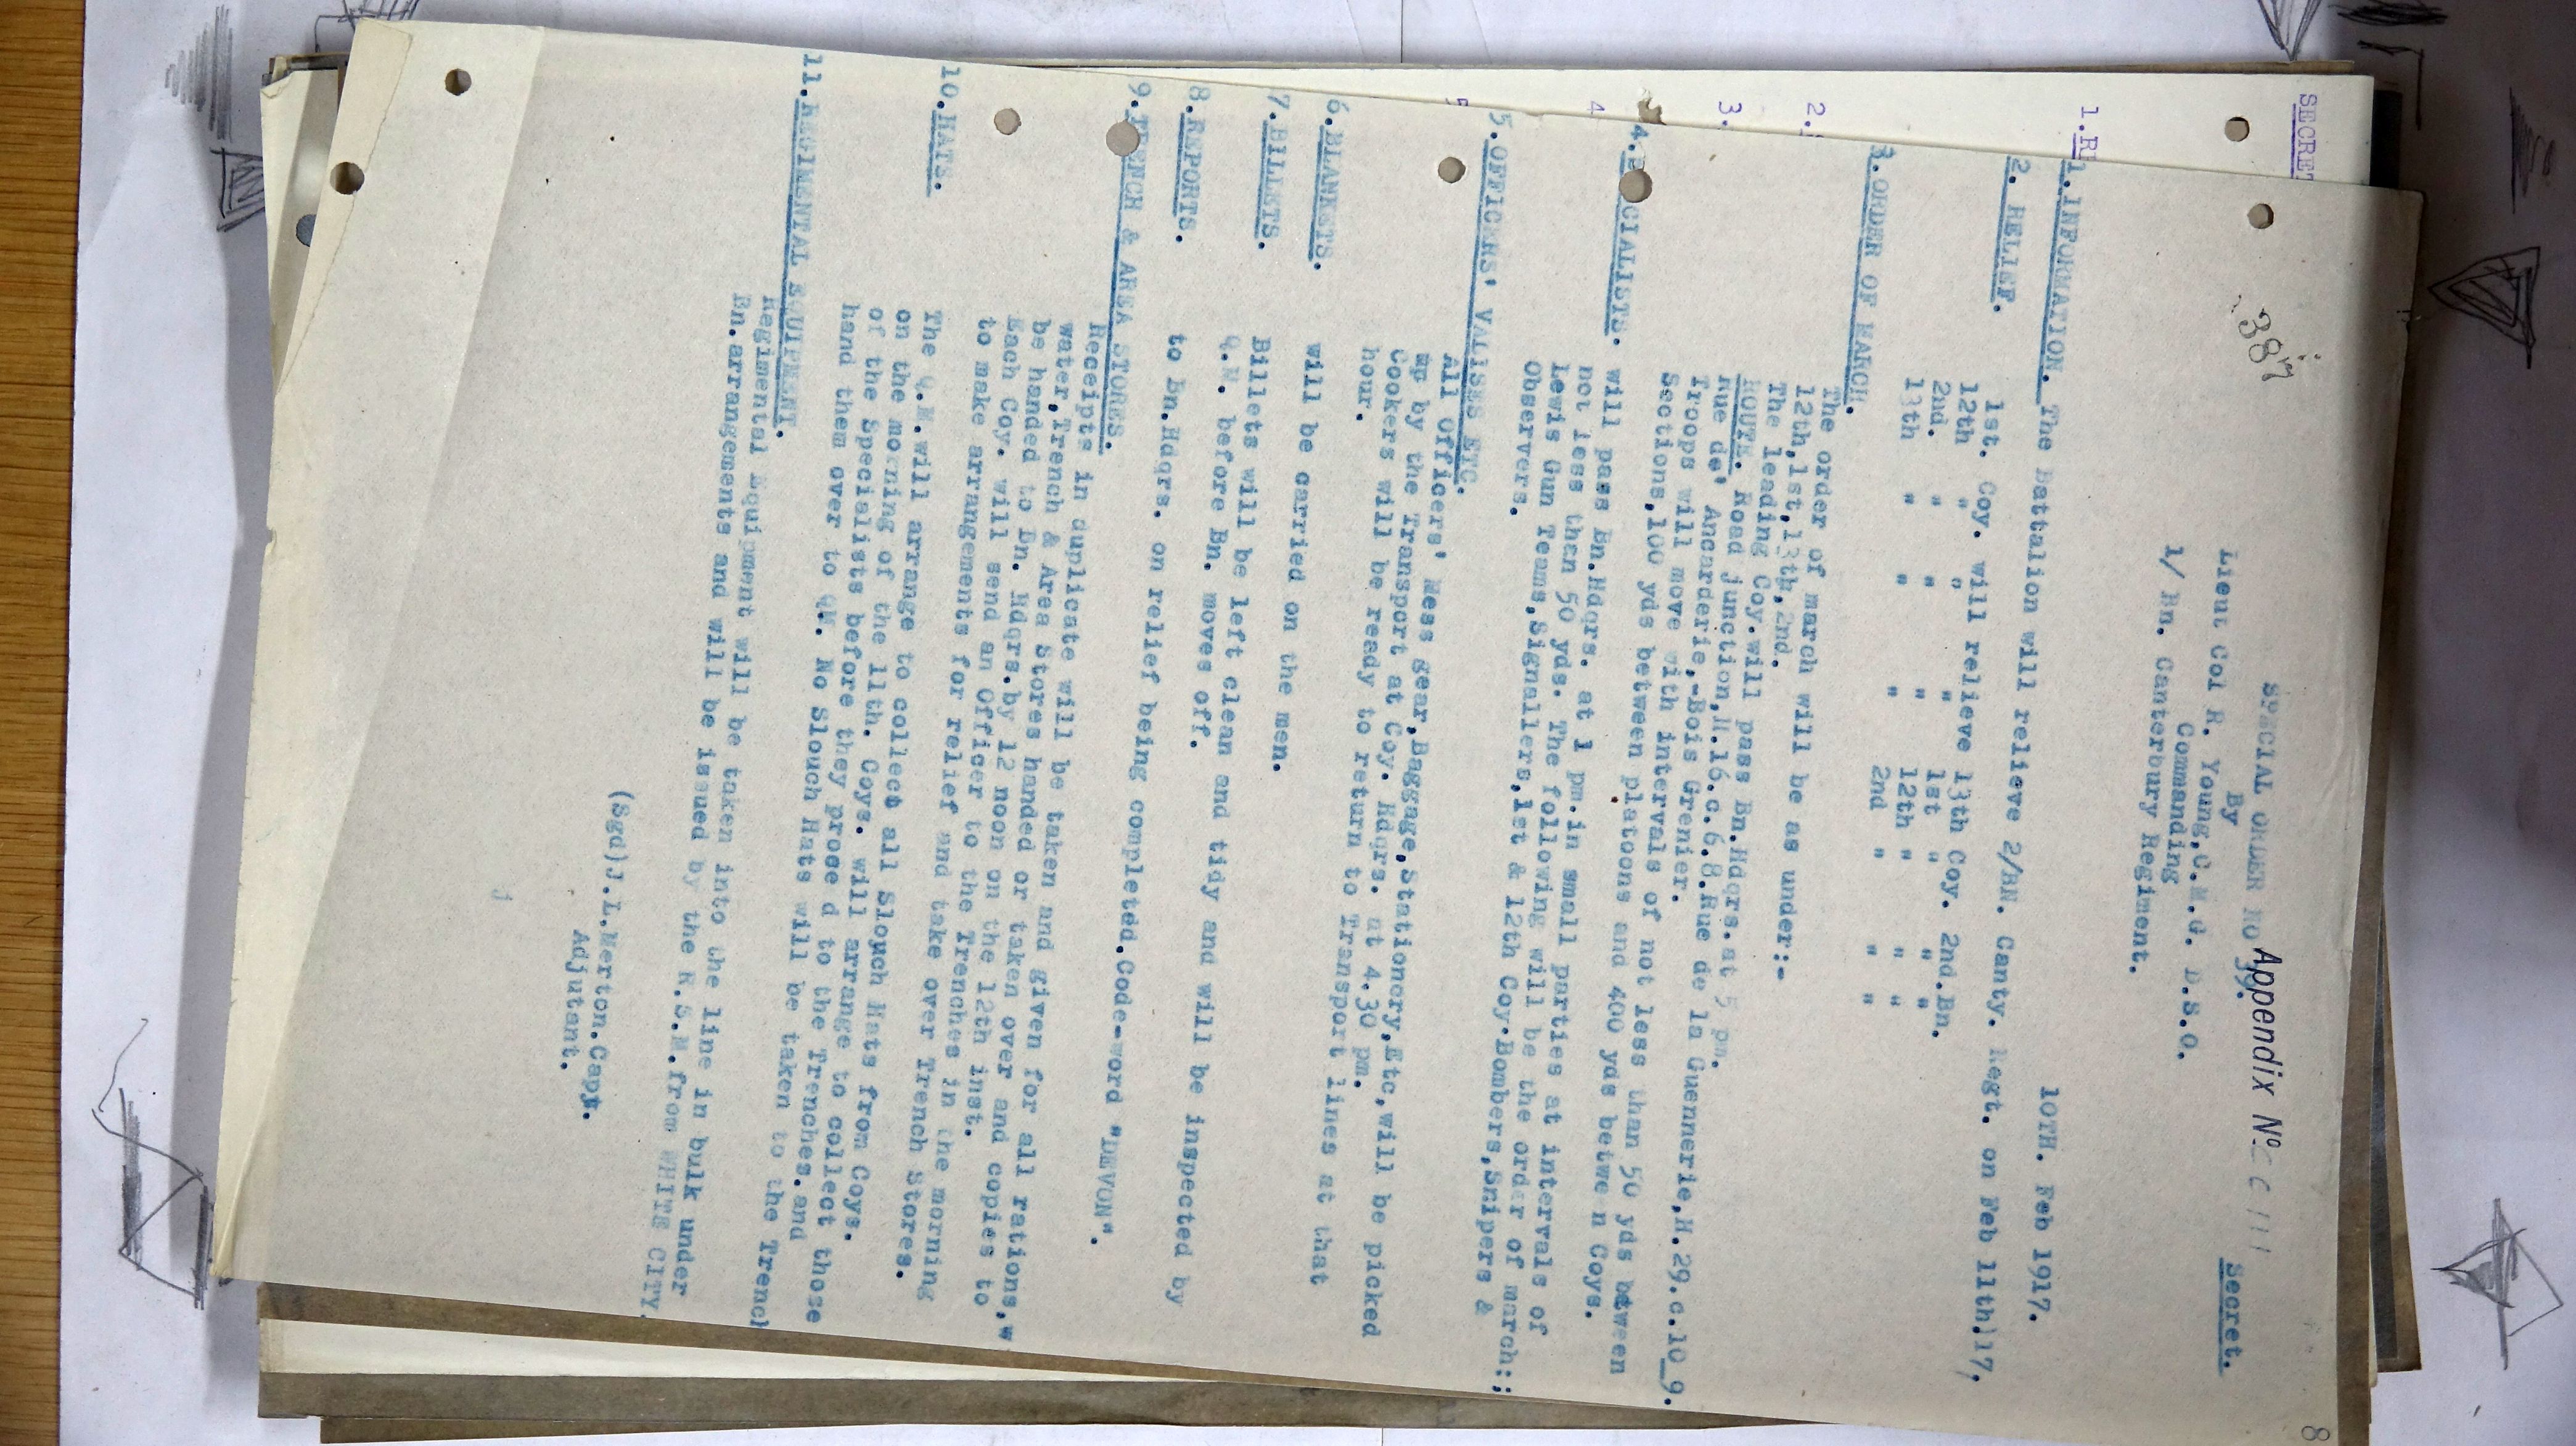 387
Appendix No
Secret.
SPECIAL ORDER NO 39.
By
Lieut Col R. Young,C.M.G. D.S.O.
Commanding
1/ Bn. Canterbury Regiment.
10TH. Feb 1917.
1.INFORMATION. The Battalion will relieve 2/BN. Canty. Regt. on Feb 11th)17,
2. RELIEF.
1st. Coy. will relieve 13th Coy. 2nd.Bn.
12th " " " 1st " " "
2nd. " " " 12th " " "
13th " " " 2nd " " "
3.ORDER OF MARCH.
The order of march will be as under:-
12th,1st,13th,2nd.
The leading Coy.will pass Bn.Hdqrs.at 5 pm.
ROUTE. Road junction,H.16.c.6.8.Rue de la Guennerie,H.29.c.10_9.
Rue de' Ancarderie,-Bois Grenier.
Troops will move with intervals of not less than 50 yds between
sections,100 yds between platoons and 400 yds betwe n Coys.
4. CIALISTS. will pass Bn.Hdqrs. at 1 pm.in small parties at intervals of
not less than 50 yds. The following will be the order of march:;
Lewis Gun Teams,Signallers,1st & 12th Coy.Bombers,Snipers &
Observers.
5.OFFICERS' VALISES ETC.
All Officers' Mess gear,Baggage,Stationery,Etc,will be picked
up by the Transport at Coy. Hdqrs. at 4.30 pm.
Cookers will be ready to return to Transport lines at that
hour.
6.BLANKETS. will be carried on the men.
7.BILLETS. Billets will be left clean and tidy and will be inspected by
Q.M. before Bn. moves off.
8.REPORTS. to Bn.Hdqrs. on relief being completed.Code-word "DEVON".
9.TRENCH & AREA STORES.
Receipts in duplicate will be taken and given for all rations,w
water,Trench & Area Stores handed or taken over and copies to
be handed to Bn. Hdqrs.by 12 noon on the 12th inst.
Each Coy. will send an Officer to the Trenches in the morning
to make arrangements for relief and take over Trench Stores.
10.HATS. The Q.M.will arrange to collect all Slouch Hats from Coys.
on the mo ning of the 11th. Coys. will arrange to collect those
of the Specialists before they procee d to the Trenches.and
hand them over to QM. No Slouch Hats will be taken to the Trencl
11.REGIMENTAL EQUIPMENT.
Regimental Equipment will be taken into the line in bulk under
Bn.arrangements and will be issued by the R.S.M.from WHITE CITY.
(Sgd)J.L.Merton.Capt.
Adjutant.
8
SECRET
1.RE
2.
3.
4
5